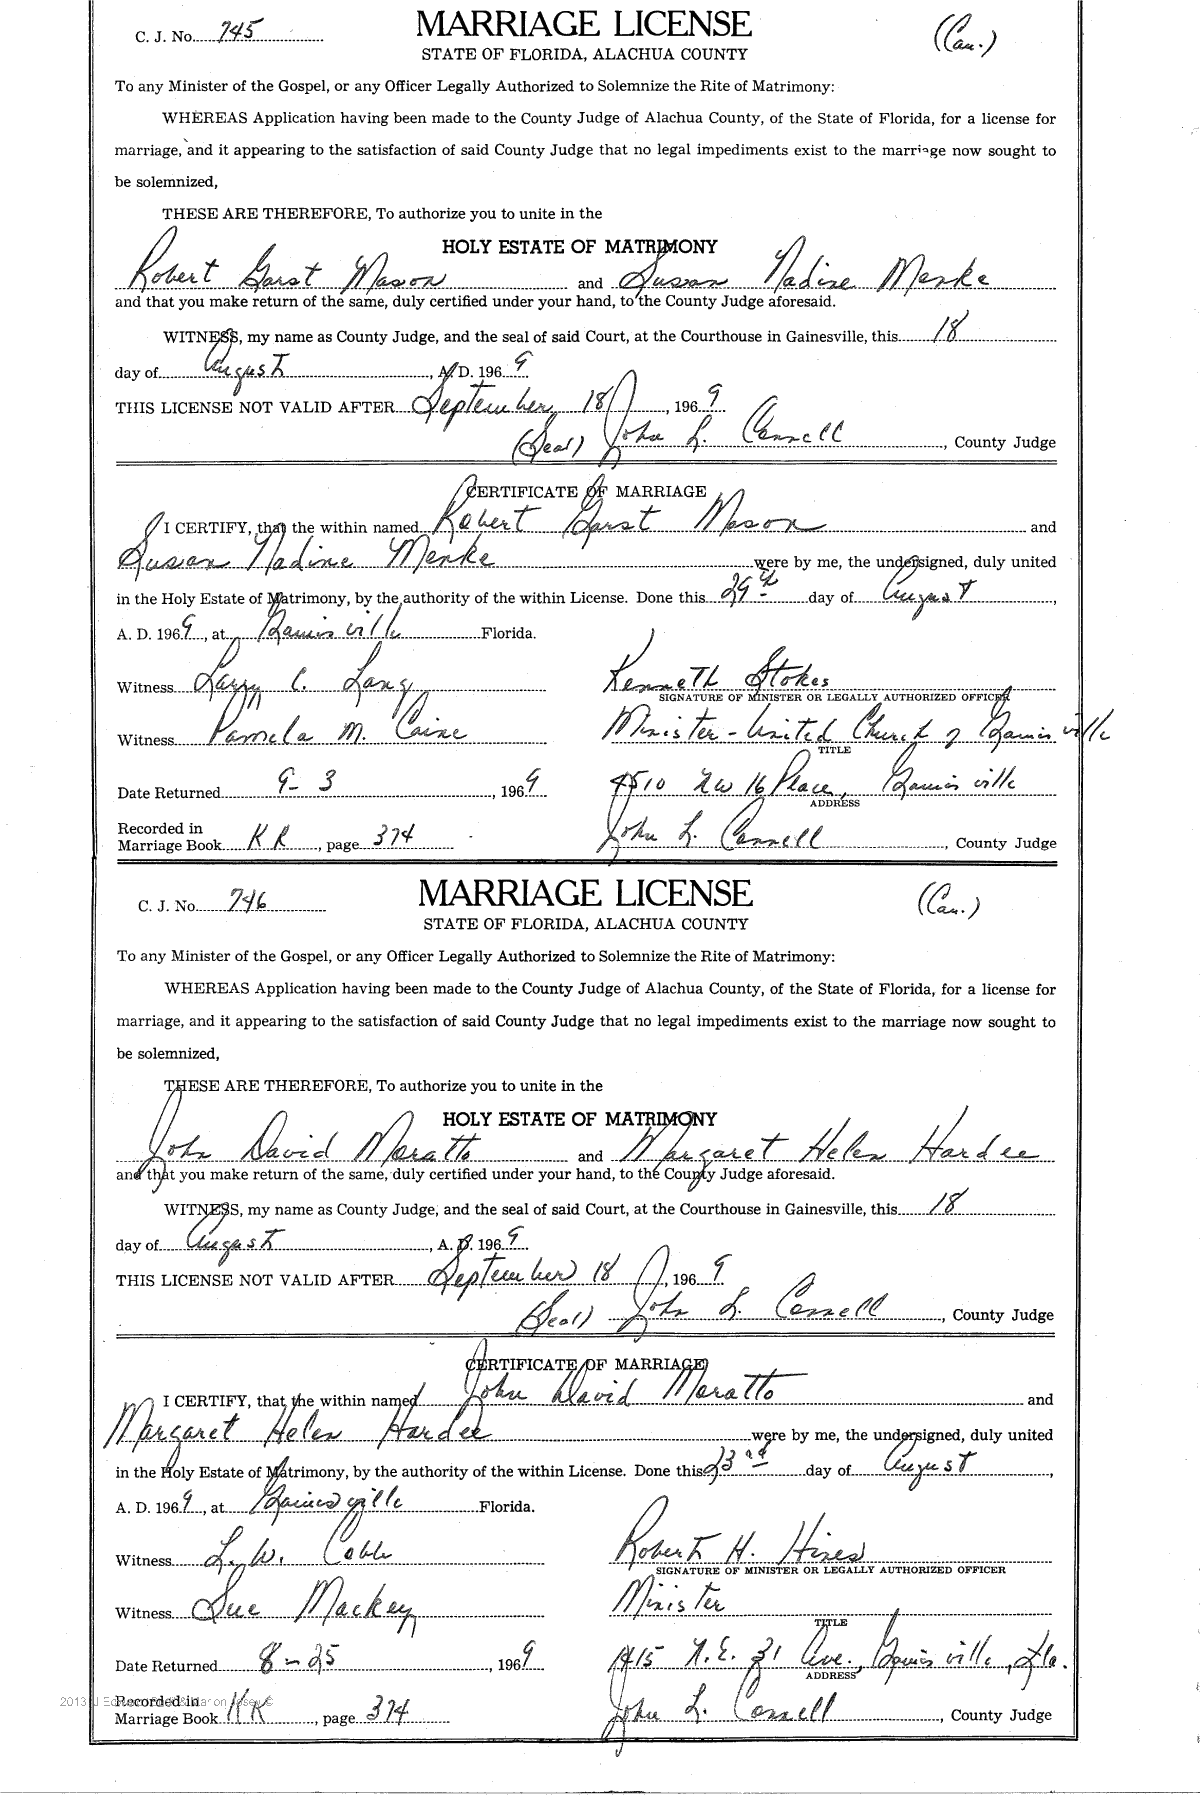 C. J. No. 745
MARRIAGE LICENSE
(Cau.)
STATE OF FLORIDA, ALACHUA COUNTY
To any Minister of the Gospel, or any Officer Legally Authorized to Solemnize the Rite of Matrimony:
WHEREAS Application having been made to the County Judge of Alachua County, of the State of Florida, for a license for
marriage, and it appearing to the satisfaction of said County Judge that no legal impediments exist to the marriage now sought to
be solemnized,
THESE ARE THEREFORE, To authorize you to unite in the
HOLY ESTATE OF MATRIMONY
Robert Garst Mason and Susan Nadine Menke
and that you make return of the same, duly certified under your hand, to the County Judge aforesaid.
WITNESS, my name as County Judge, and the seal of said Court, at the Courthouse in Gainesville, this 18
day of August, A. D. 1969
THIS LICENSE NOT VALID AFTER September 18, 1969
(Seal) John L. Connell, County Judge
CERTIFICATE OF MARRIAGE
I CERTIFY, that the within named Robert Garst Mason and
Susan Nadine Menke were by me, the undersigned, duly united
in the Holy Estate of Matrimony, by the authority of the within License. Done this 29th day of August,
A. D. 1969, at Gainesville Florida.
Witness Larry C. Lang
Kenneth Stokes
SIGNATURE OF MINISTER OR LEGALLY AUTHORIZED OFFICER
Witness Pamela M. Caine
Minister - United Church of Gainesville
TITLE
Date Returned 9-3, 1969
4510 NW 16 Place, Gainesville
ADDRESS
Recorded in
Marriage Book KK, page 374
John L. Connell, County Judge
C. J. No. 746
MARRIAGE LICENSE
(Cau.)
STATE OF FLORIDA, ALACHUA COUNTY
To any Minister of the Gospel, or any Officer Legally Authorized to Solemnize the Rite of Matrimony:
WHEREAS Application having been made to the County Judge of Alachua County, of the State of Florida, for a license for
marriage, and it appearing to the satisfaction of said County Judge that no legal impediments exist to the marriage now sought to
be solemnized,
THESE ARE THEREFORE, To authorize you to unite in the
HOLY ESTATE OF MATRIMONY
John David Moratto and Margaret Helen Hardee
and that you make return of the same, duly certified under your hand, to the County Judge aforesaid.
WITNESS, my name as County Judge, and the seal of said Court, at the Courthouse in Gainesville, this 18
day of August, A. D. 1969
THIS LICENSE NOT VALID AFTER September 18, 1969
(Seal) John L. Connell, County Judge
CERTIFICATE OF MARRIAGE
I CERTIFY, that the within named John David Moratto and
Margaret Helen Hardee were by me, the undersigned, duly united
in the Holy Estate of Matrimony, by the authority of the within License. Done this 23rd day of August,
A. D. 1969, at Gainesville Florida.
Witness L. W. Cobb
Robert H. Hines
SIGNATURE OF MINISTER OR LEGALLY AUTHORIZED OFFICER
Witness Sue Mackey
Minister
TITLE
Date Returned 8-25, 1969
1415 N.E. 31 Ave., Gainesville, Fla.
ADDRESS
2013
Recorded in
Marriage Book KK, page 374
John L. Connell, County Judge